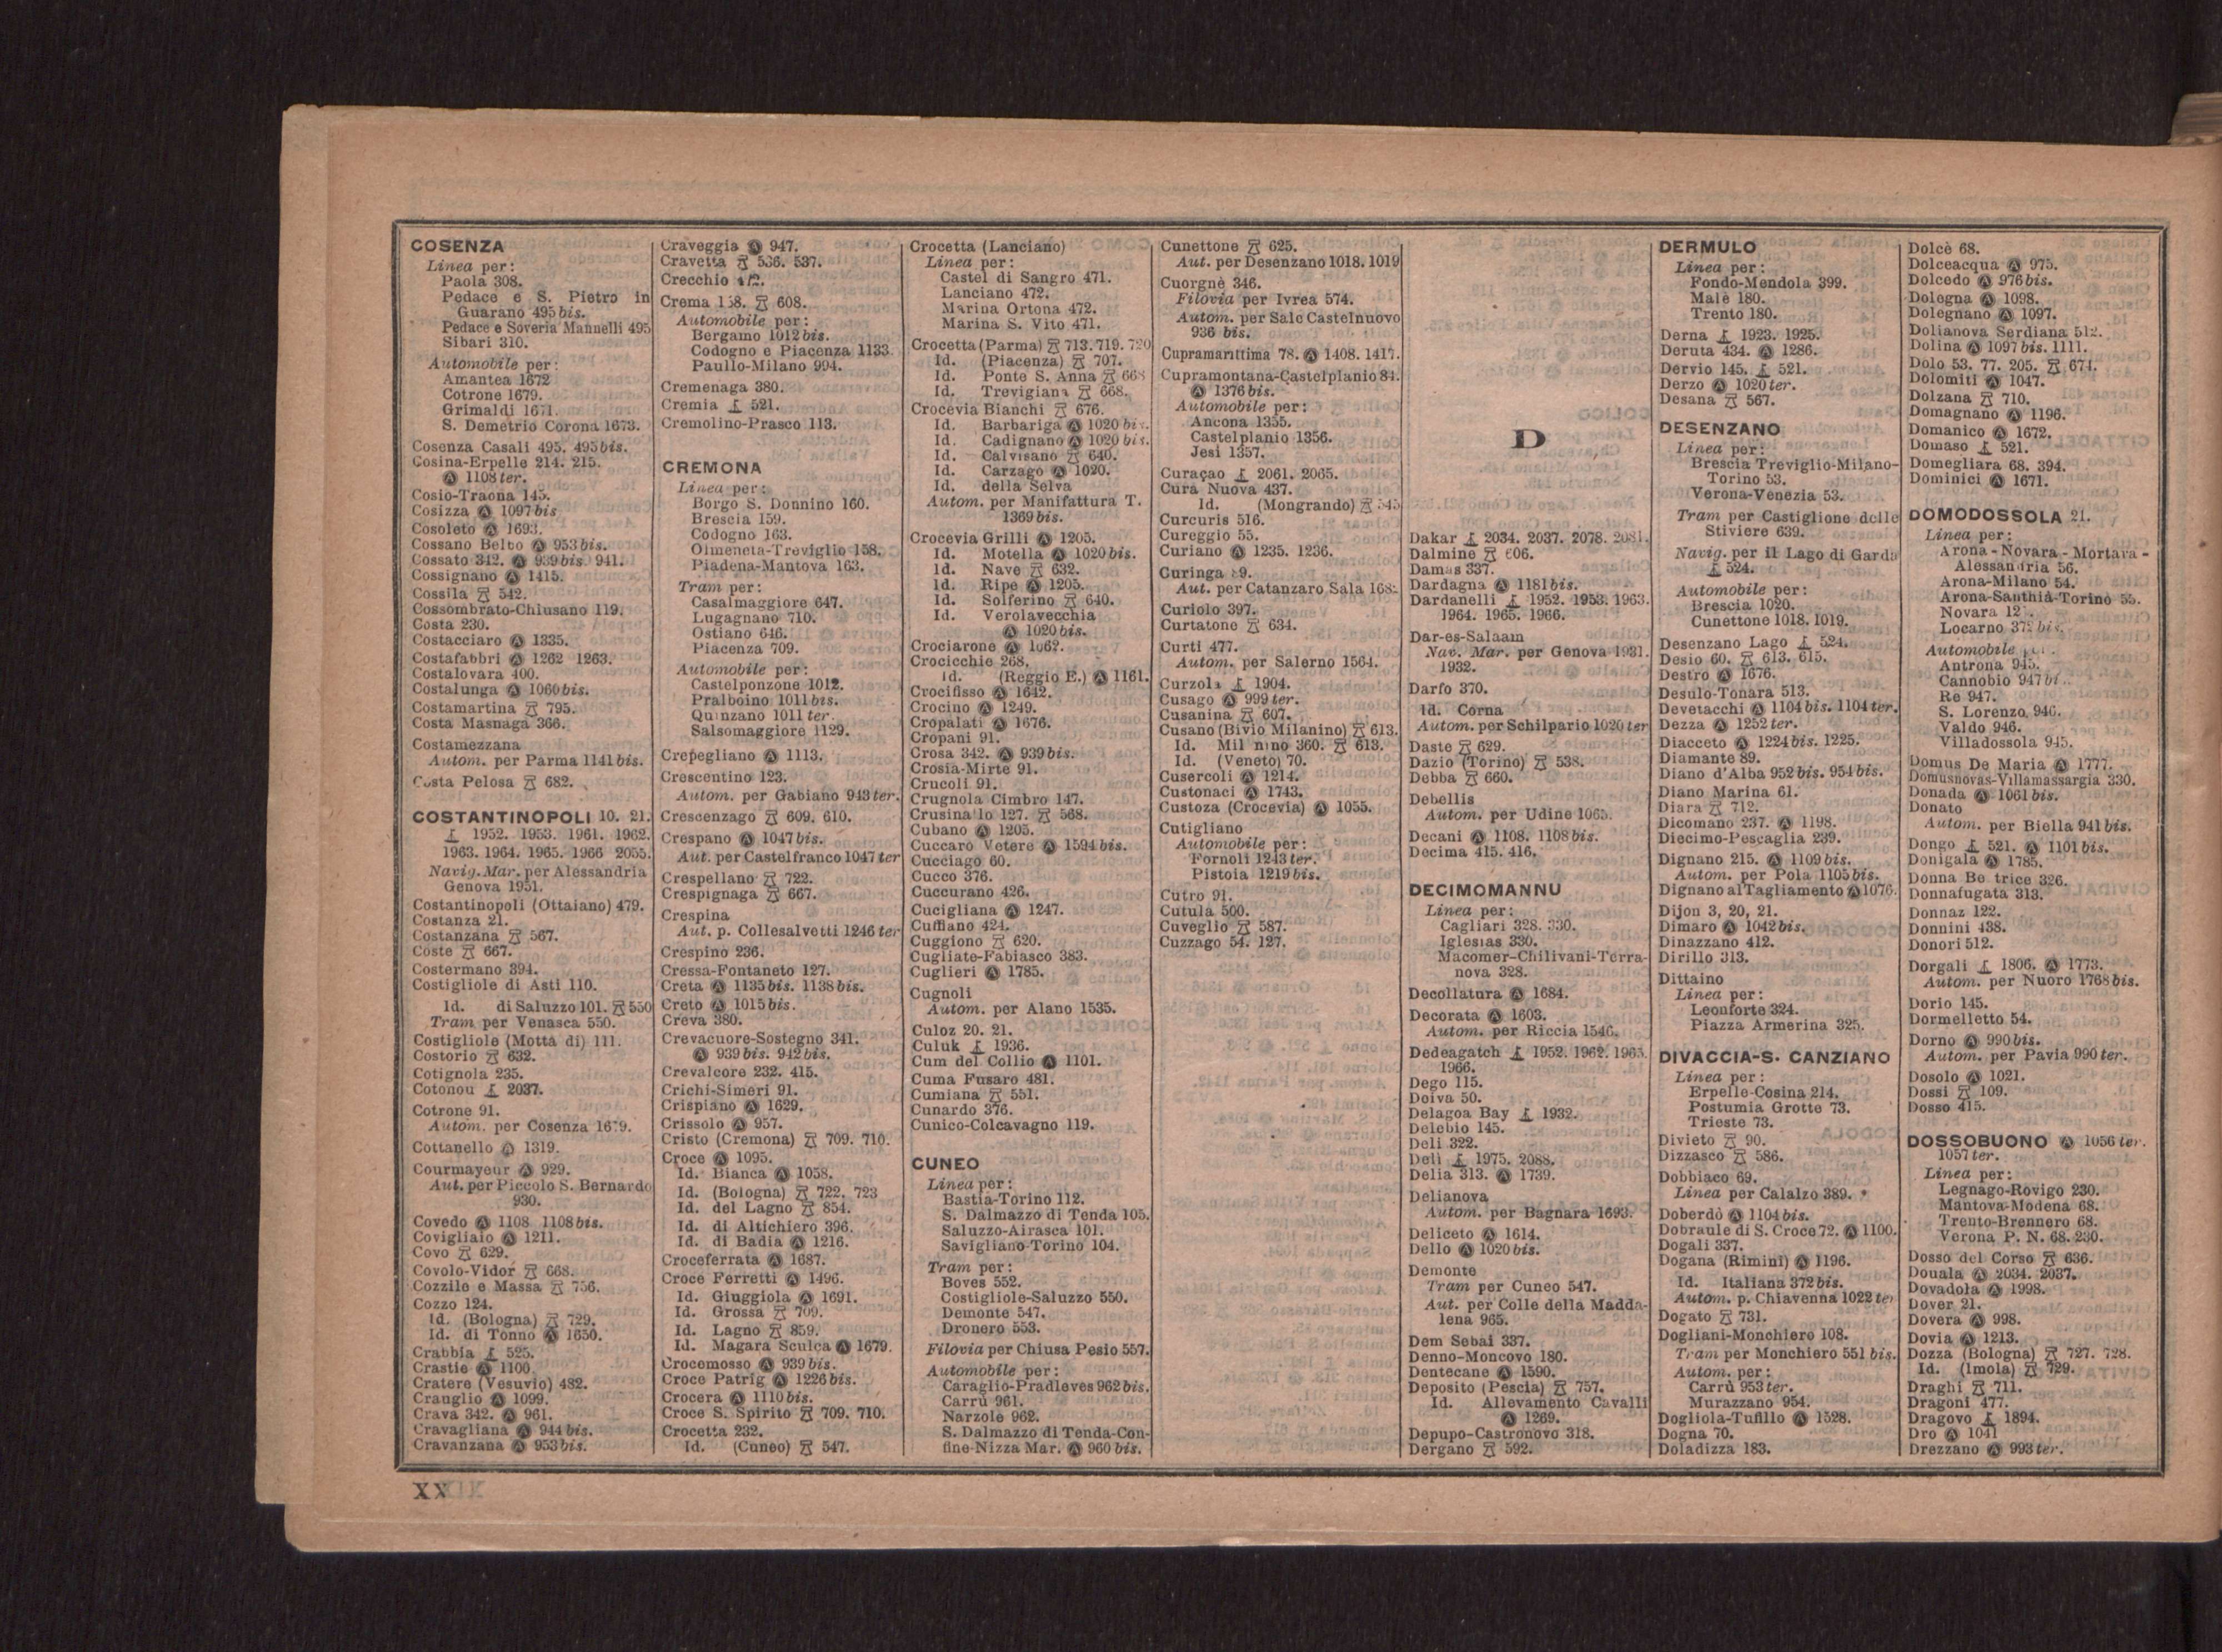 COSENZA
Linea per:
Paola 308.
Pedace e S. Pietro in
Guarano 495 bis.
Pedace e Soveria Mannelli 495
Sibari 310.
Automobile per:
Amantea 1672
Cotrone 1679.
Grimaldi 1671.
S. Demetrio Corona 1673.
Cosenza Casali 495. 495 bis.
Cosina-Erpelle 214. 215.
Ⓐ 1108 ter.
Cosio-Traona 145.
Cosizza Ⓐ 1097 bis
Cosoleto Ⓐ 1693.
Cossano Belbo Ⓐ 953 bis.
Cossato 342. Ⓐ 939 bis 941.
Cossignano Ⓐ 1415.
Cossila 542.
Cossombrato-Chiusano 119.
Costa 230.
Costacciaro Ⓐ 1335.
Costafabbri Ⓐ 1262 1263.
Costalovara 400.
Costalunga Ⓐ 1060 bis.
Costamartina 795.
Costa Masnaga 366.
Costamezzana
Autom. per Parma 1141 bis.
Costa Pelosa 682.
COSTANTINOPOLI 10. 21.
1952. 1953. 1961. 1962.
1963. 1964. 1965. 1966 2055.
Navig. Mar. per Alessandria
Genova 1951.
Costantinopoli (Ottaiano) 479.
Costanza 21.
Costanzana 567.
Coste 667.
Costermano 394.
Costigliole di Asti 110.
Id. di Saluzzo 101. 550
Tram per Venasca 550.
Costigliole (Motta di) 111.
Costorio 632.
Cotignola 235.
Cotonou 2037.
Cotrone 91.
Autom. per Cosenza 1679.
Cottanello Ⓐ 1319.
Courmayeur Ⓐ 929.
Aut. per Piccolo S. Bernardo
930.
Covedo Ⓐ 1108 1108 bis.
Covigliaio Ⓐ 1211.
Covo 629.
Covolo-Vidor 668.
Cozzile e Massa 756.
Cozzo 124.
Id. (Bologna) 729.
Id. di Tonno Ⓐ 1650.
Crabbia 525.
Crastie Ⓐ 1100
Cratere (Vesuvio) 482.
Crauglio Ⓐ 1099.
Crava 342. Ⓐ 961.
Cravagliana Ⓐ 944 bis.
Cravanzana Ⓐ 953 bis.
Craveggia Ⓐ 947.
Cravetta 536. 537.
Crecchio
Crema 158. 608.
Automobile per:
Bergamo 1012 bis.
Codogno e Piacenza 1133.
Paullo-Milano 994.
Cremenaga 380.
Cremia 521.
Cremolino-Prasco 113.
CREMONA
Linea per:
Borgo S. Donnino 160.
Brescia 159.
Codogno 163.
Olmeneta-Treviglio 158.
Piadena-Mantova 163.
Tram per:
Casalmaggiore 647.
Lugagnano 710.
Ostiano 646.
Piacenza 709.
Automobile per:
Castelponzone 1012.
Pralboino 1011 bis.
Quinzano 1011 ter.
Salsomaggiore 1129.
Crepegliano Ⓐ 1113.
Crescentino 123.
Autom. per Gabiano 943 ter.
Crescenzago 609. 610.
Crespano Ⓐ 1047 bis.
Aut. per Castelfranco 1047 ter
Crespellano 722.
Crespignaga 667.
Crespina
Aut. p. Collesalvetti 1246 ter
Crespino 236.
Cressa-Fontaneto 127.
Creta Ⓐ 1135 bis. 1138 bis.
Creto Ⓐ 1015 bis.
Creva 380.
Crevacuore-Sostegno 341.
Ⓐ 939 bis. 942 bis.
Crevalcore 232. 415.
Crichi-Simeri 91.
Crispiano Ⓐ 1629.
Crissolo Ⓐ 957.
Cristo (Cremona) 709. 710.
Croce Ⓐ 1095.
Id. Bianca Ⓐ 1058.
Id. (Bologna) 722. 723
Id. del Lagno 854.
Id. di Altichiero 396.
Id. di Badia Ⓐ 1216.
Croceferrata Ⓐ 1687.
Croce Ferretti Ⓐ 1496.
Id. Giuggiola Ⓐ 1691.
Id. Grossa 709.
Id. Lagno 859.
Id. Magara Sculca Ⓐ 1679.
Crocemosso Ⓐ 939 bis.
Croce Patrig Ⓐ 1226 bis.
Crocera Ⓐ 1110 bis.
Croce S. Spirito 709. 710.
Crocetta 232.
Id. (Cuneo) 547.
Crocetta (Lanciano)
Linea per:
Castel di Sangro 471.
Lanciano 472.
Marina Ortona 472.
Marina S. Vito 471.
Crocetta (Parma) 713. 719. 720
Id. (Piacenza) 707.
Id. Ponte S. Anna 668
Id. Trevigiana 668.
Crocevia Bianchi 676.
Id. Barbariga Ⓐ 1020 bis.
Id. Cadignano Ⓐ 1020 bis.
Id. Calvisano 640.
Id. Carzago Ⓐ 1020.
Id. della Selva
Autom. per Manifattura T.
1369 bis.
Crocevia Grilli Ⓐ 1205.
Id. Motella Ⓐ 1020 bis.
Id. Nave 632.
Id. Ripe Ⓐ 1205.
Id. Solferino 640.
Id. Verolavecchia
Ⓐ 1020 bis.
Crociarone Ⓐ 1062.
Crocicchie 268.
Id. (Reggio E.) Ⓐ 1161.
Crocifisso Ⓐ 1642.
Crocino Ⓐ 1249.
Cropalati Ⓐ 1676.
Cropani 91.
Crosa 342. Ⓐ 939 bis.
Crosia-Mirte 91.
Crucoli 91.
Crugnola Cimbro 147.
Crusinallo 127. 568.
Cubano Ⓐ 1205.
Cuccaro Vetere Ⓐ 1594 bis.
Cucciago 60.
Cucco 376.
Cuccurano 426.
Cucigliana Ⓐ 1247.
Cuffiano 424.
Cuggiono 620.
Cugliate-Fabiasco 383.
Cuglieri Ⓐ 1785.
Cugnoli
Autom. per Alano 1535.
Culoz 20. 21.
Culuk 1936.
Cum del Collio Ⓐ 1101.
Cuma Fusaro 481.
Cumiana 551.
Cunardo 376.
Cunico-Colcavagno 119.
CUNEO
Linea per:
Bastia-Torino 112.
S. Dalmazzo di Tenda 105.
Saluzzo-Airasca 101.
Savigliano-Torino 104.
Tram per:
Boves 552.
Costigliole-Saluzzo 550.
Demonte 547.
Dronero 553.
Filovia per Chiusa Pesio 557.
Automobile per:
Caraglio-Pradleves 962 bis.
Carrù 961.
Narzole 962.
S. Dalmazzo di Tenda-Con-
fine-Nizza Mar. Ⓐ 960 bis.
Cunettone 625.
Aut. per Desenzano 1018. 1019
Cuorgnè 346.
Filovia per Ivrea 574.
Autom. per Sale Castelnuovo
936 bis.
Cupramarittima 78. Ⓐ 1408. 1417.
Cupramontana-Castelplanio 84.
Ⓐ 1376 bis.
Automobile per:
Ancona 1355.
Castelplanio 1356.
Jesi 1357.
Curaçao 2061. 2065.
Cura Nuova 437.
Id. (Mongrando) 545
Curcuris 516.
Cureggio 55.
Curiano Ⓐ 1235. 1236.
Curinga
Aut. per Catanzaro Sala
Curiolo 397.
Curtatone 634.
Curti 477.
Autom. per Salerno 1564.
Curzola 1904.
Cusago Ⓐ 999 ter.
Cusanina 607.
Cusano (Bivio Milanino) 613.
Id. Milanino 360. 613.
Id. (Veneto) 70.
Cusercoli Ⓐ 1214.
Custonaci Ⓐ 1743.
Custoza (Crocevia) Ⓐ 1055.
Cutigliano
Automobile per:
Fornoli 1243 ter.
Pistoia 1219 bis.
Cutro 91.
Cutula 500.
Cuveglio 587.
Cuzzago 54. 127.
D
Dakar 2034. 2037. 2078. 2081.
Dalmine 606.
Damas 337.
Dardagna Ⓐ 1181 bis.
Dardanelli 1952. 1953. 1963.
1964. 1965. 1966.
Dar-es-Salaam
Nav. Mar. per Genova 1931.
1932.
Darfo 370.
Id. Corna
Autom. per Schilpario 1020 ter
Daste 629.
Dazio (Torino) 538.
Debba 660.
Debellis
Autom. per Udine 1065.
Decani Ⓐ 1108. 1108 bis.
Decima 415. 416.
DECIMOMANNU
Linea per:
Cagliari 328. 330.
Iglesias 330.
Macomer-Chilivani-Terra-
nova 328.
Decollatura Ⓐ 1684.
Decorata Ⓐ 1603.
Autom. per Riccia 1546.
Dedeagatch 1952. 1962. 1965.
1966.
Dego 115.
Deiva 50.
Delagoa Bay 1932.
Delebio 145.
Deli 322.
Deli 1975. 2088.
Delia 313. Ⓐ 1739.
Delianova
Autom. per Bagnara 1693.
Deliceto Ⓐ 1614.
Dello Ⓐ 1020 bis.
Demonte
Tram per Cuneo 547.
Aut. per Colle della Madda-
lena 965.
Dem Sebai 337.
Denno-Moncovo 180.
Dentecane Ⓐ 1590.
Deposito (Pescia) 757.
Id. Allevamento Cavalli
Ⓐ 1269.
Depupo-Castronovo 318.
Dergano 592.
DERMULO
Linea per:
Fondo-Mendola 399.
Malè 180.
Trento 180.
Derna 1923. 1925.
Deruta 434. Ⓐ 1286.
Dervio 145. 521.
Derzo Ⓐ 1020 ter.
Desana 567.
DESENZANO
Linea per:
Brescia Treviglio-Milano-
Torino 53.
Verona-Venezia 53.
Tram per Castiglione delle
Stiviere 639.
Navig. per il Lago di Garda
524.
Automobile per:
Brescia 1020.
Cunettone 1018. 1019.
Desenzano Lago 524.
Desio 60. 613. 615.
Destro Ⓐ 1676.
Desulo-Tonara 513.
Devetacchi Ⓐ 1104 bis. 1104 ter.
Dezza Ⓐ 1252 ter.
Diacceto Ⓐ 1224 bis. 1225.
Diamante 89.
Diano d'Alba 952 bis. 954 bis.
Diano Marina 61.
Diara 712.
Dicomano 237. Ⓐ 1198.
Diecimo-Pescaglia 239.
Dignano 215. Ⓐ 1109 bis.
Autom. per Pola 1105 bis.
Dignano al Tagliamento Ⓐ 1076.
Dijon 3, 20, 21.
Dimaro Ⓐ 1042 bis.
Dinazzano 412.
Dirillo 313.
Dittaino
Linea per:
Leonforte 324.
Piazza Armerina 325.
DIVACCIA-S. CANZIANO
Linea per:
Erpelle-Cosina 214.
Postumia Grotte 73.
Trieste 73.
Divieto 90.
Dizzasco 586.
Dobbiaco 69.
Linea per Calalzo 389.
Doberdò Ⓐ 1104 bis.
Dobraule di S. Croce 72. Ⓐ 1100.
Dogali 337.
Dogana (Rimini) Ⓐ 1196.
Id. Italiana 372 bis.
Autom. p. Chiavenna 1022 ter
Dogato 731.
Dogliani-Monchiero 108.
Tram per Monchiero 551 bis.
Autom. per:
Carrù 953 ter.
Murazzano 954.
Dogliola-Tufillo Ⓐ 1528.
Dogna 70.
Doladizza 183.
Dolcè 68.
Dolceacqua Ⓐ 975.
Dolcedo Ⓐ 976 bis.
Dolegna Ⓐ 1098.
Dolegnano Ⓐ 1097.
Dolianova Serdiana 512.
Dolina Ⓐ 1097 bis. 1111.
Dolo 53. 77. 205. 674.
Dolomiti Ⓐ 1047.
Dolzana 710.
Domagnano Ⓐ 1196.
Domanico Ⓐ 1672.
Domaso 521.
Domegliara 68. 394.
Dominici Ⓐ 1671.
DOMODOSSOLA 21.
Linea per:
Arona-Novara-Mortara-
Alessandria 56.
Arona-Milano 54.
Arona-Santhià-Torino 55.
Novara
Locarno 372 bis.
Automobile
Antrona 945.
Cannobio 947
Re 947.
S. Lorenzo 946.
Valdo 946.
Villadossola 945.
Domus De Maria Ⓐ 1777.
Domusnovas-Villamassargia 330.
Donada Ⓐ 1061 bis.
Donato
Autom. per Biella 941 bis.
Dongo 521. Ⓐ 1101 bis.
Donigala Ⓐ 1785.
Donna Beatrice 326.
Donnafugata 313.
Donnaz 122.
Donnini 438.
Donori 512.
Dorgali 1806. Ⓐ 1773.
Autom. per Nuoro 1768 bis.
Dorio 145.
Dormelletto 54.
Dorno Ⓐ 990 bis.
Autom. per Pavia 990 ter.
Dosolo Ⓐ 1021.
Dossi 109.
Dosso 415.
DOSSOBUONO Ⓐ 1056 ter.
1057 ter.
Linea per:
Legnago-Rovigo 230.
Mantova-Modena 68.
Trento-Brennero 68.
Verona P. N. 68. 230.
Dosso del Corso 636.
Douala Ⓐ 2034. 2037.
Dovadola Ⓐ 1998.
Dover 21.
Dovera Ⓐ 998.
Dovia Ⓐ 1213.
Dozza (Bologna) 727. 728.
Id. (Imola) 729.
Draghi 711.
Dragoni 477.
Dragovo 1894.
Dro Ⓐ 1041
Drezzano Ⓐ 993 ter.
XX